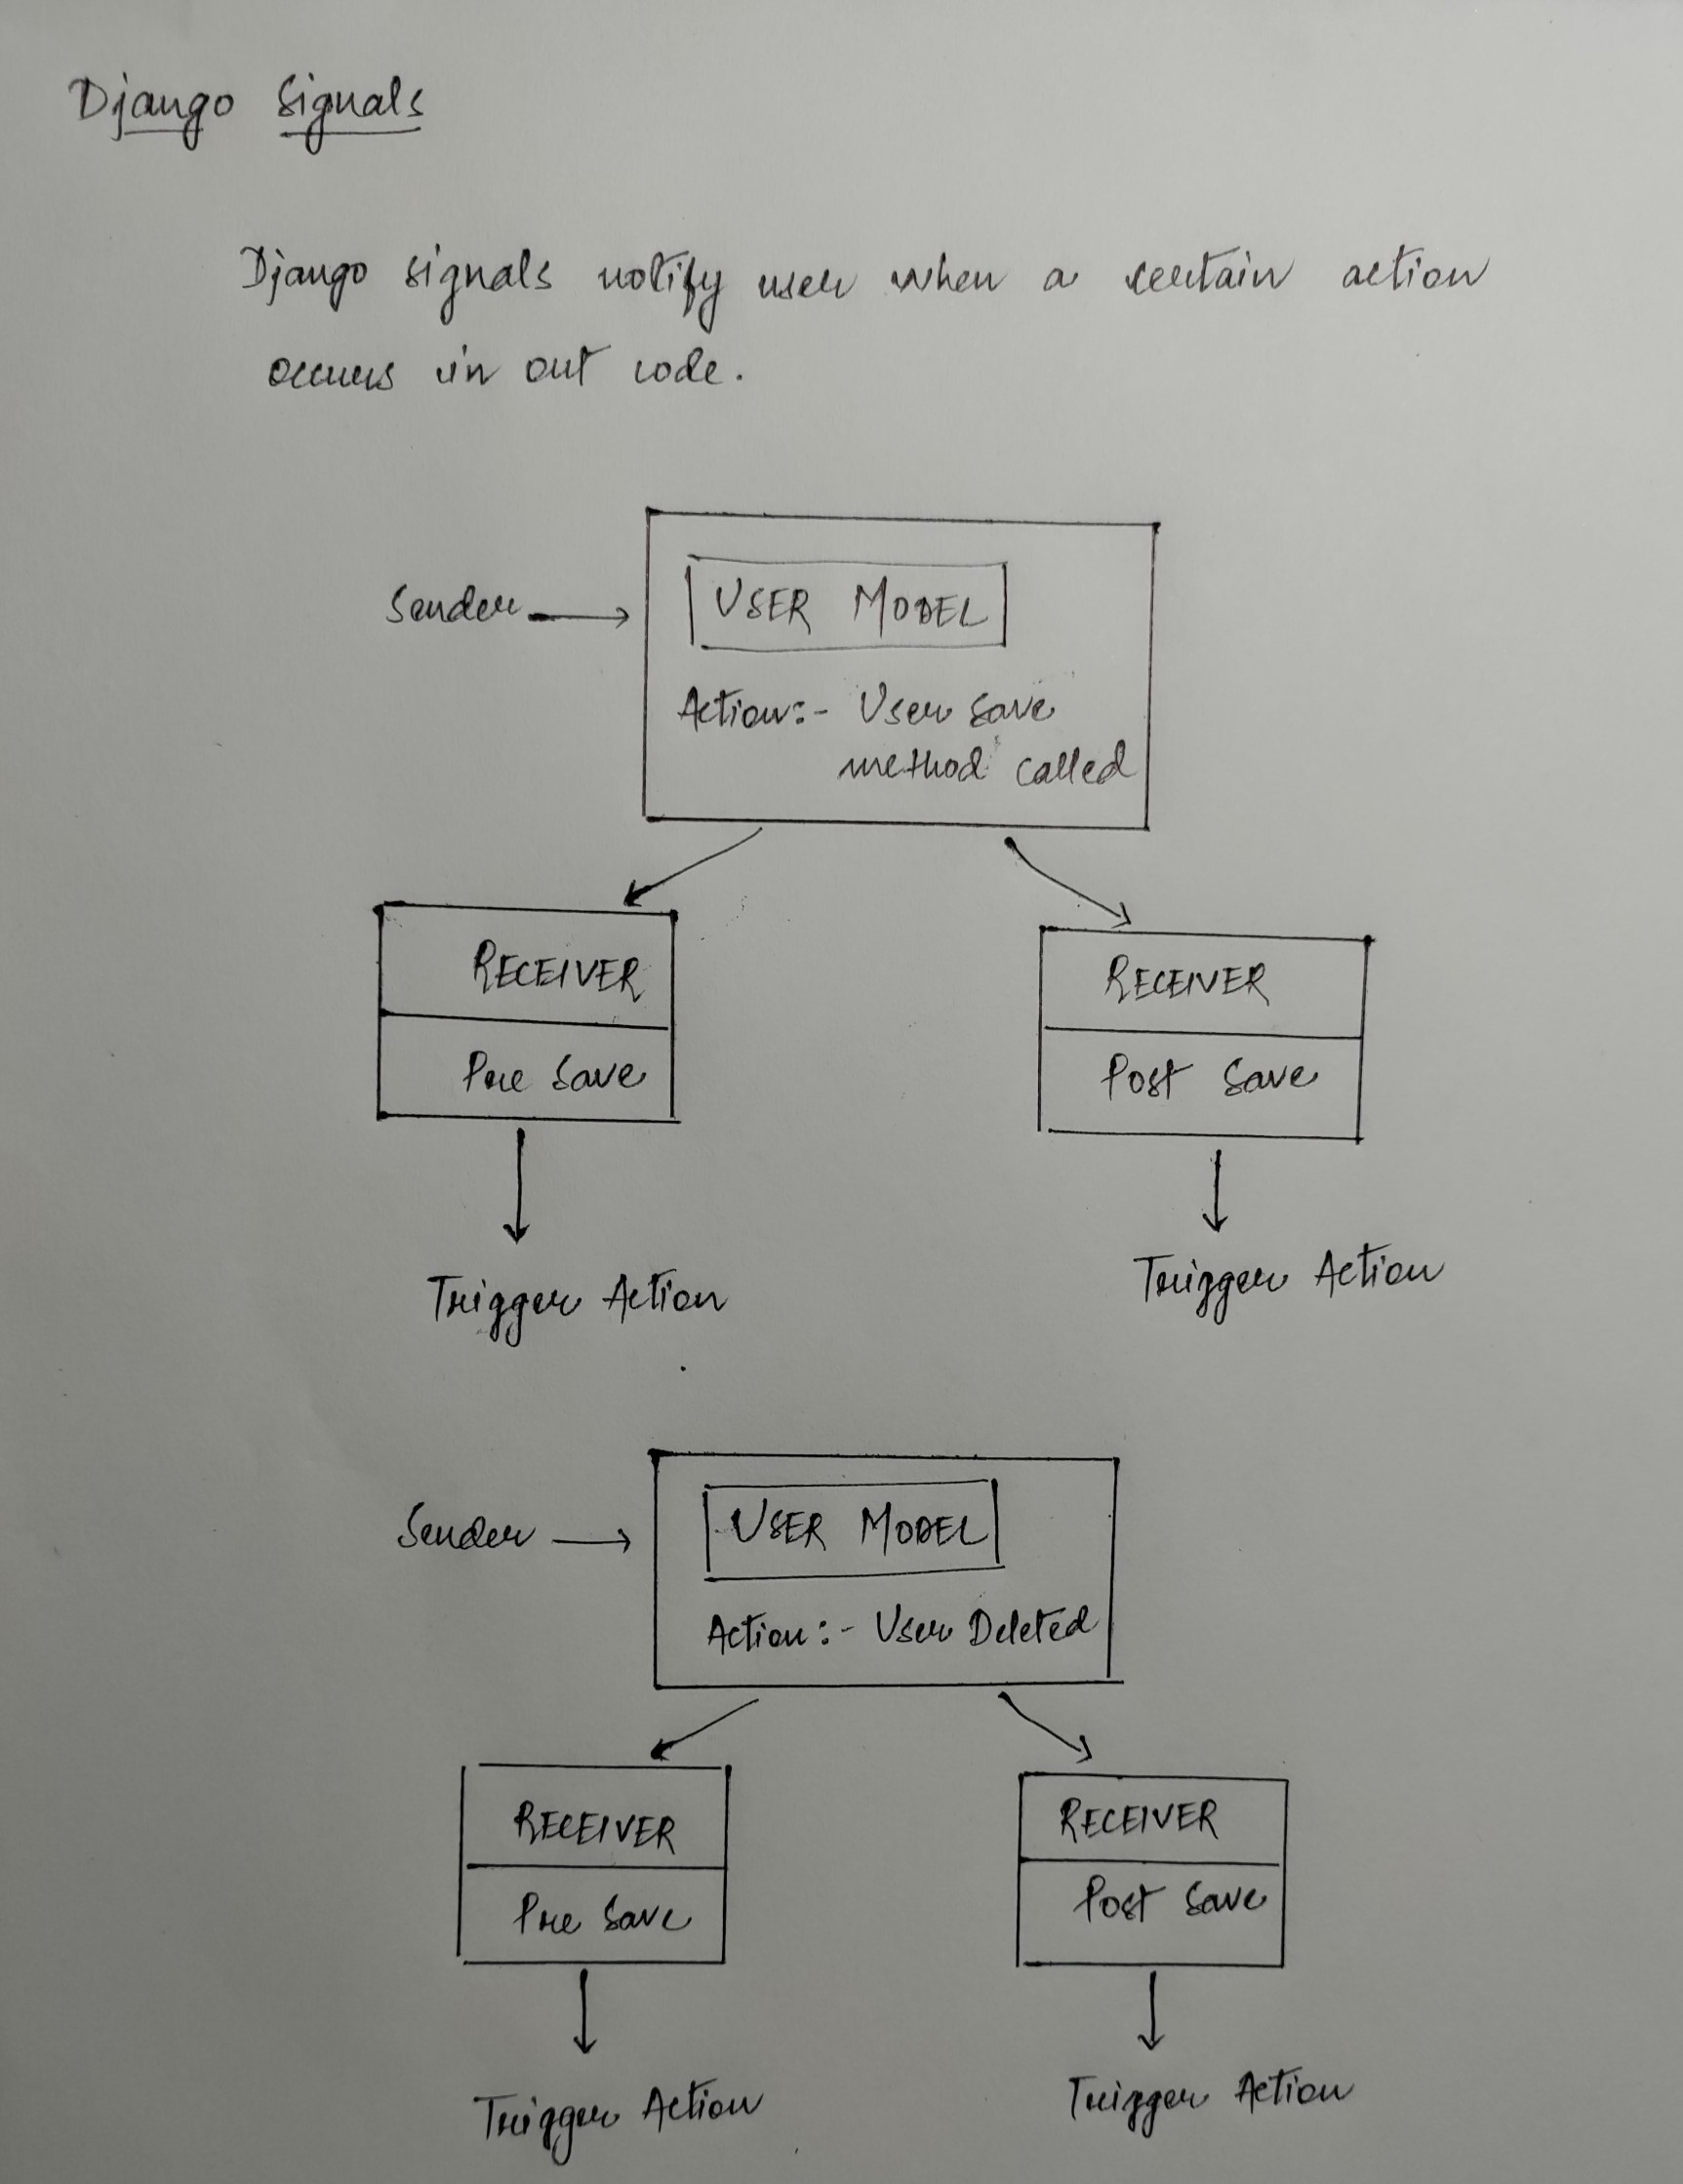 Django Signals
Django signals notify user when a certain action
occurs in out code.
Sender
USER MODEL
Action:- User save
method called
RECEIVER
Pre Save
Trigger Action
RECEIVER
Post Save
Trigger Action
Sender
USER MODEL
Action:- User Deleted
RECEIVER
Pre Save
Trigger Action
RECEIVER
Post Save
Trigger Action